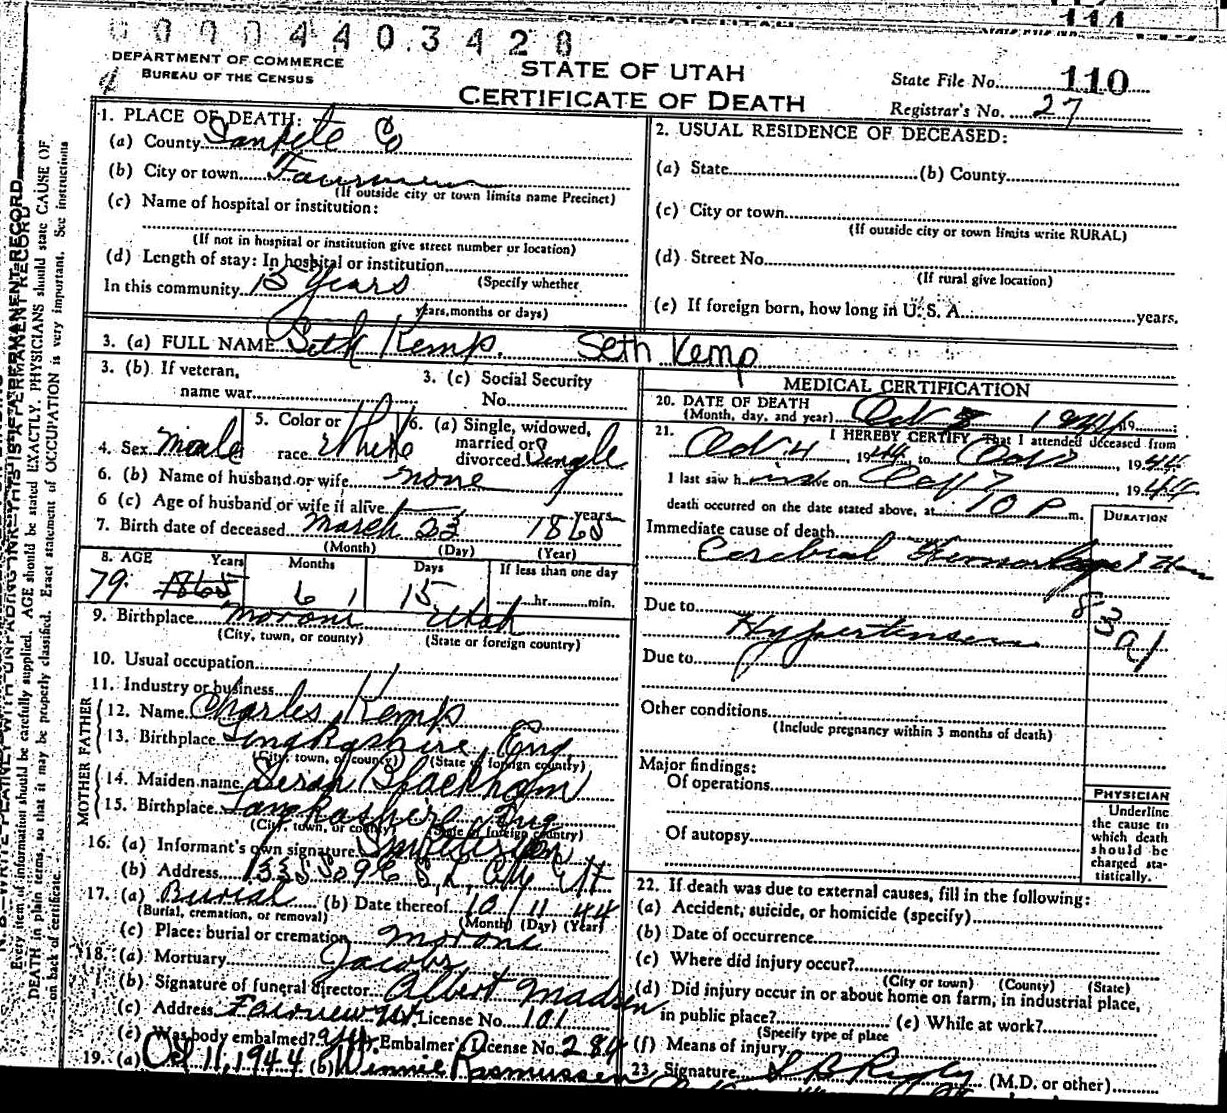 114
0 0 0 0 4 4 0 3 4 2 8
DEPARTMENT OF COMMERCE
BUREAU OF THE CENSUS
STATE OF UTAH
CERTIFICATE OF DEATH
State File No. 110
Registrar's No. 27
1. PLACE OF DEATH:
(a) County Sanpete Co
(b) City or town
(If outside city or town limits name Precinct)
(c) Name of hospital or institution:
(If not in hospital or institution give street number or location)
(d) Length of stay: In hospital or institution
(Specify whether
In this community 15 Years
years, months or days)
2. USUAL RESIDENCE OF DECEASED:
(a) State (b) County
(c) City or town
(If outside city or town limits write RURAL)
(d) Street No.
(If rural give location)
(e) If foreign born, how long in U. S. A. years.
3. (a) FULL NAME Seth Kemp. Seth Kemp
3. (b) If veteran,
name war
3. (c) Social Security
No.
4. Sex Male
5. Color or
race White
6. (a) Single, widowed,
married or
divorced Single
6. (b) Name of husband or wife none
6 (c) Age of husband or wife if alive years
7. Birth date of deceased March 23 1865
(Month) (Day) (Year)
8. AGE Years Months Days If less than one day
79 1865 6 1 15 hr. min.
9. Birthplace Moroni Utah
(City, town, or county) (State or foreign country)
10. Usual occupation
11. Industry or business
FATHER
12. Name Charles Kemp
13. Birthplace Eng
(City, town, or county) (State or foreign country)
MOTHER
14. Maiden name
15. Birthplace Eng
(City, town, or county) (State or foreign country)
16. (a) Informant's own signature
(b) Address
17. (a) Burial (b) Date thereof 10 11 44
(Burial, cremation, or removal) (Month) (Day) (Year)
(c) Place: burial or cremation Moroni
18. (a) Mortuary Jacobs
(b) Signature of funeral director Albert Madsen
(c) Address Fairview Ut. License No. 101
(e) Was body embalmed? Embalmer's License No. 284
19. (a) Oct 11, 1944 (b) Winnie Rasmussen
MEDICAL CERTIFICATION
20. DATE OF DEATH
(Month, day, and year) Oct 1944 19
21. I HEREBY CERTIFY That I attended deceased from
Oct 4, 1944 to Oct 7, 1944
I last saw h im alive on Oct 7 1944
death occurred on the date stated above, at 10 P m.
DURATION
Immediate cause of death
Cerebral Hemorrhage
Due to
Hypertension
83a1
Due to
Other conditions
(Include pregnancy within 3 months of death)
Major findings:
Of operations
Of autopsy
PHYSICIAN
Underline
the cause to
which death
should be
charged sta-
tistically.
22. If death was due to external causes, fill in the following:
(a) Accident, suicide, or homicide (specify)
(b) Date of occurrence
(c) Where did injury occur?
(City or town) (County) (State)
(d) Did injury occur in or about home on farm, in industrial place,
in public place? (e) While at work?
(Specify type of place
(f) Means of injury
23. Signature (M.D. or other)
Every item of information should be carefully supplied. AGE should be stated EXACTLY. PHYSICIANS should state CAUSE OF
DEATH in plain terms, so that it may be properly classified. Exact statement of OCCUPATION is very important. See instructions
on back of certificate.